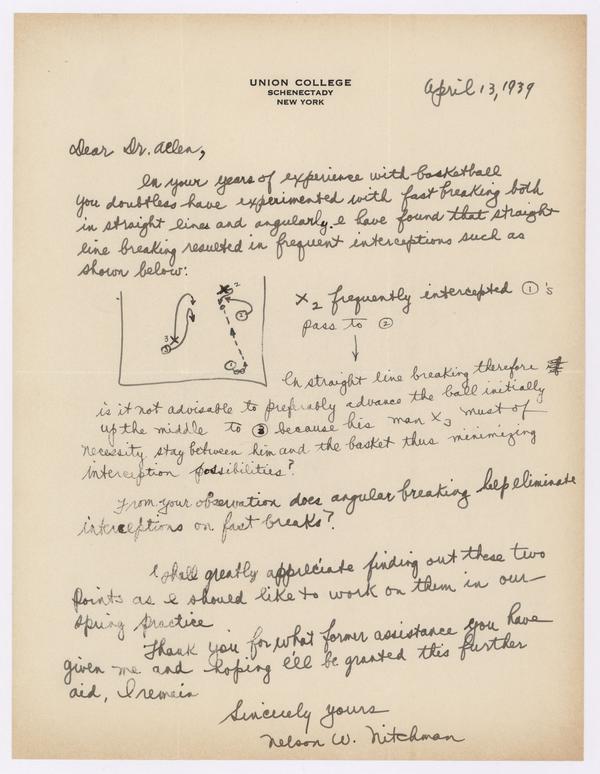 UNION COLLEGE
SCHENECTADY
NEW YORK
April 13, 1939
Dear Dr. Allen,
In your years of experience with basketball
you doubtless have experimented with fast breaking both
in straight lines and angularly. I have found that straight
line breaking resulted in frequent interceptions such as
shown below:
X 2
2
3 X
3
1
X2 frequently intercepted 1's
pass to 2
In straight line breaking therefore
is it not advisable to preferably advance the ball initially
up the middle to 3 because his man X3 must of
necessity stay between him and the basket thus minimizing
interception possibilities?
From your observation does angular breaking help eliminate
interceptions on fast breaks?
I shall greatly appreciate finding out these two
points as I should like to work on them in our
spring practice
Thank you for what former assistance you have
given me and hoping I'll be granted this further
aid, I remain
Sincerely yours
Nelson W. Nitchman